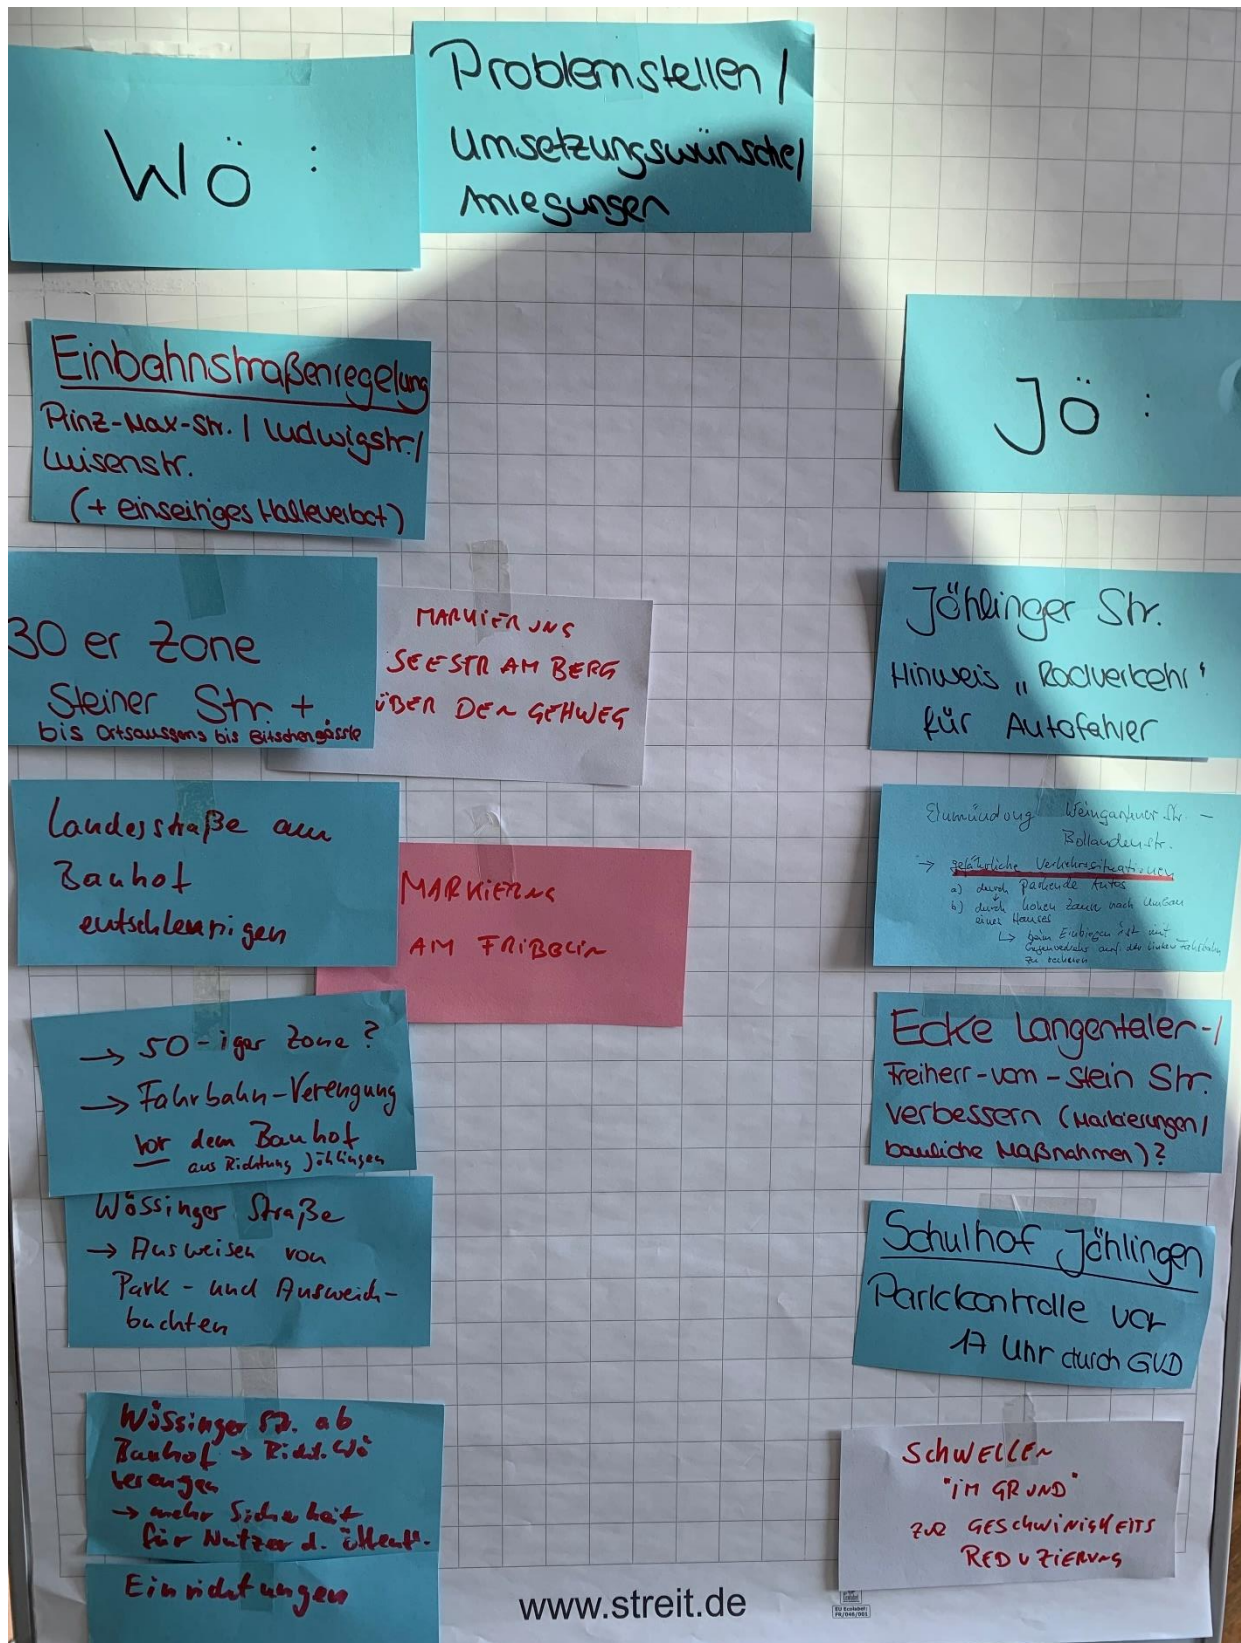 Wö :
Problemstellen /
Umsetzungswünsche /
Anregungen
Einbahnstraßenregelung
Prinz-Max-Str. / Ludwigstr. /
Luisenstr.
(+ einseitiges Halteverbot)
30 er Zone
Steiner Str. +
bis Ortsausgang bis
MARKIERUNG
SEESTR AM BERG
ÜBER DEN GEHWEG
Landesstraße am
Bauhof
entschleunigen
MARKIERNG
AM FRIBBLIN
→ 50-iger Zone ?
→ Fahrbahn-Verengung
vor dem Bauhof
aus Richtung Jöhlingen
Wössinger Straße
→ Ausweisen von
Park- und Ausweich-
buchten
Wössinger Str. ab
Bauhof → Richt. Wö
verengen
→ mehr Sicherheit
für Nutzer d. öffentl.
Einrichtungen
Jö :
Jöhlinger Str.
Hinweis „Radverkehr"
für Autofahrer
Einmündung Weingartner Str. –
Bollandenstr.
→ gefährliche Verkehrssituationen
a) durch parkende Autos
b) durch hohen Zaun nach Umbau
eines Hauses
↳ beim Einbiegen ist mit
Gegenverkehr auf der linken Fahrbahn
zu rechnen
Ecke Langentaler- /
Freiherr-vom-Stein Str.
verbessern (Markierungen /
bauliche Maßnahmen) ?
Schulhof Jöhlingen
Parkkontrolle vor
17 Uhr durch GVD
SCHWELLEN
"IM GRUND"
ZUR GESCHWINIGKEITS
REDUZIERUNG
www.streit.de